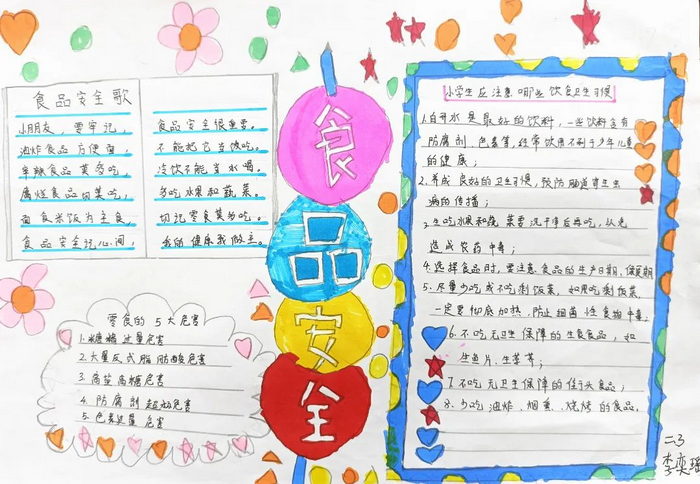 食品安全歌
小朋友，要牢记，
油炸食品方便面，
辛辣食品莫多吃，
腐烂食品切莫吃，
面食米饭为主食，
食品安全记心间，
食品安全很重要。
不能把它当饭吃。
冷饮不能当水喝。
多吃水果和蔬菜。
切记零食莫多吃。
我的健康我做主。
零食的5大危害
1.糖过量危害
2.大量反式脂肪酸危害
3.高盐高糖危害
4.防腐剂超标危害
5.色素过量危害
食品安全
小学生应注意哪些饮食卫生习惯
1.白开水是最好的饮料，一些饮料含有
防腐剂、色素等，经常饮用不利于少年儿童
的健康；
2.养成良好的卫生习惯，预防肠道寄生虫
病的传播；
3.生吃水果和蔬菜要洗干净后再吃，以免
造成农药中毒；
4.选择食品时，要注意食品的生产日期、保质期
5.尽量少吃或不吃剩饭菜，如需吃剩饭菜，
一定要彻底加热，防止细菌性食物中毒；
6.不吃无卫生保障的生食食品，如
生鱼片、生荸荠；
7.不吃无卫生保障的街头食品；
8.少吃油炸、烟熏、烧烤的食品，
二3
李奕